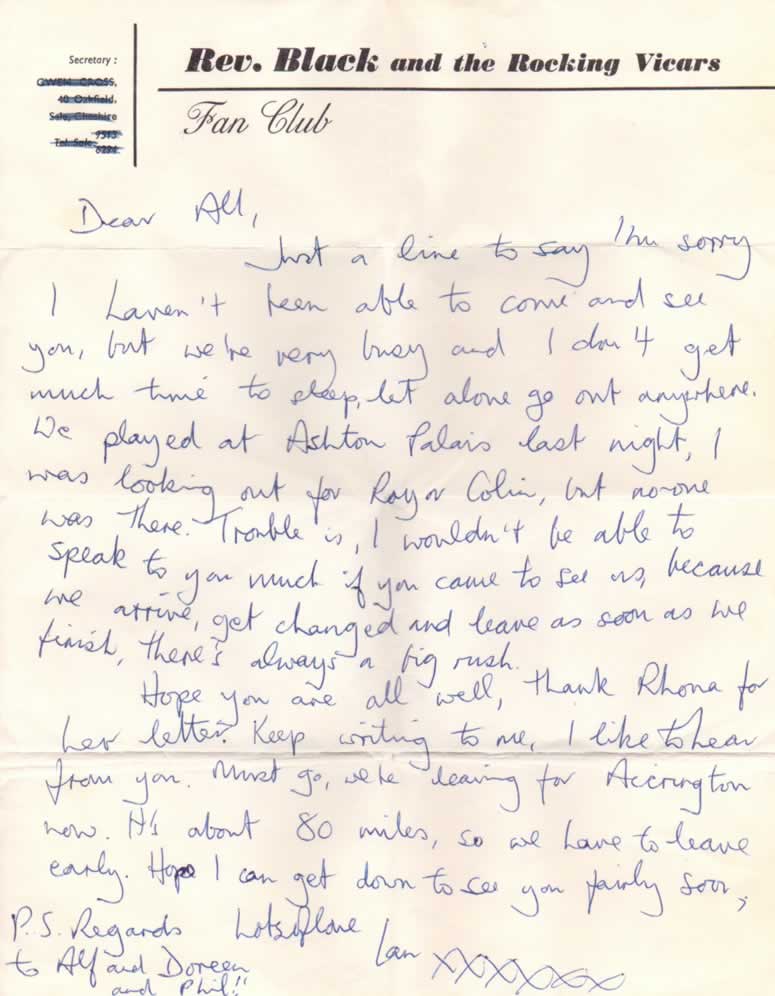 Secretary :
GWEN CROSS,
40 Oakfield,
Sale, Cheshire
Tel. Sale
Rev. Black and the Rocking Vicars
Fan Club
Dear All,
Just a line to say I'm sorry
I haven't been able to come and see
you, but we're very busy and I don't get
much time to sleep, let alone go out anywhere.
We played at Ashton Palais last night, I
was looking out for Roy or Colin, but no-one
was there. Trouble is, I wouldn't be able to
speak to you much if you came to see us, because
we arrive, get changed and leave as soon as we
finish, there's always a big rush.
Hope you are all well, thank Rhona for
her letter. Keep writing to me, I like to hear
from you. Must go, we're leaving for Accrington
now. It's about 80 miles, so we have to leave
early. Hope I can get down to see you fairly soon,
Lots of love
Ian XXXXXX
P.S. Regards
to Alf and Doreen
and Phil!!